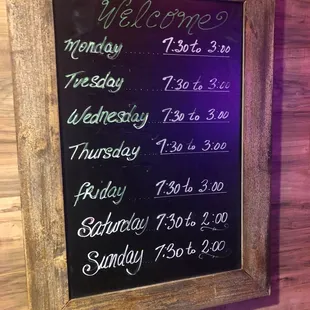 Welcome
Monday 7:30 to 3:00
Tuesday 7:30 to 3:00
Wednesday 7:30 to 3:00
Thursday 7:30 to 3:00
friday 7:30 to 3:00
Saturday 7:30 to 2:00
Sunday 7:30 to 2:00